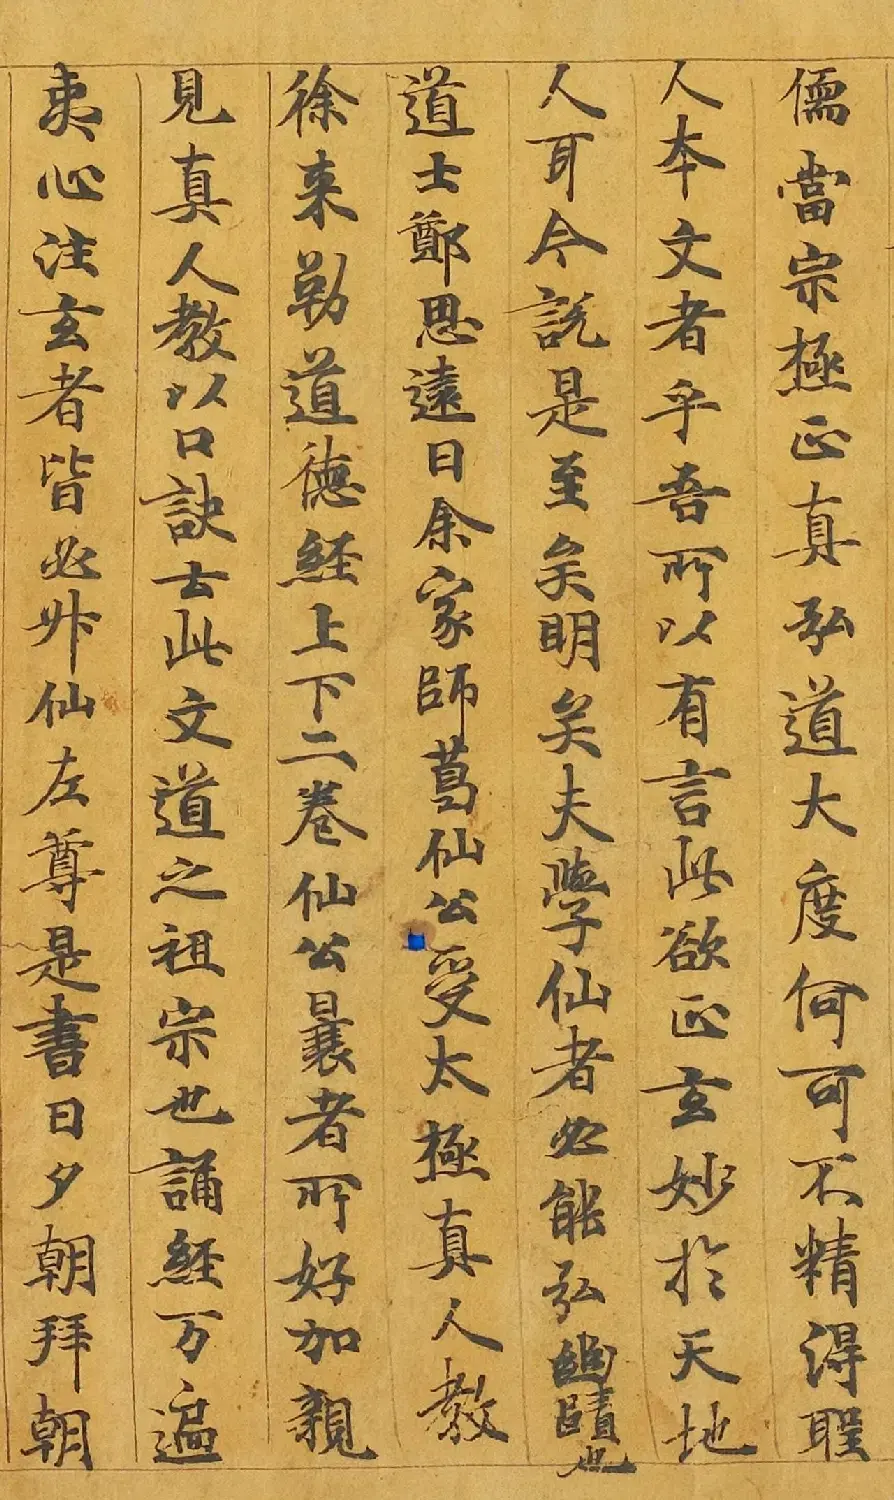 儒當宗極正真弘道大度何可不精得聖
人本文者乎吾所以有言此欲正玄妙於天地
人耳今説是至矣明矣夫學仙者必能弘幽賾也
道士鄭思遠曰余家師葛仙公受太極真人教
徐来勒道德経上下二卷仙公曩者所好加親
見真人教以口訣云此文道之祖宗也誦経万遍
夷心注玄者皆必升仙左尊是書日夕朝拜朝